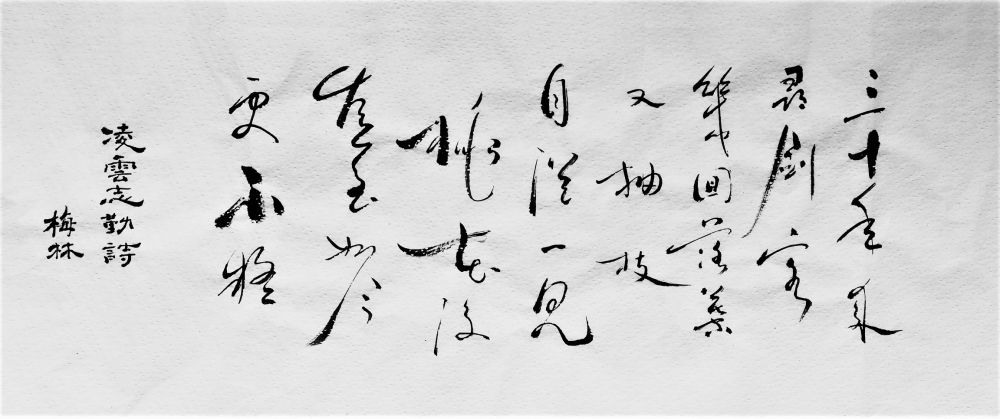 三十年来
尋劍客
幾回落葉
又抽枝
自從一見
桃花後
直至如今
更不疑
凌雲志勤詩
梅林